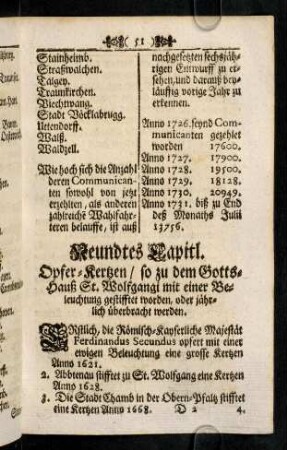 ( 51 )
Stainheimb.
Straßwalchen.
Talgey.
Traunkirchen.
Viechtwang.
Stadt Vöcklabrugg.
Uttendorff.
Walß.
Waldzell.
Wie hoch sich die Anzahl
deren Communican-
ten sowohl von jetzt
erzehlten, als anderen
zahlreiche Wahlfahr-
teren belauffe, ist auß
nochgesetzten sechsjäh-
rigen Entwurff zu er-
sehen, und darauß bey-
läuffig vorige Jahr zu
erkennen.
Anno 1726. seynd Com-
municanten gezehlet
worden 17600.
Anno 1727. 17900.
Anno 1728. 19500.
Anno 1729. 18128.
Anno 1730. 20949.
Anno 1731. biß zu End
deß Monaths Julii
13756.
Neundtes Capitl.
Opfer-Kertzen / so zu dem Gotts-
Hauß St. Wolfgangi mit einer Be-
leuchtung gestifftet worden, oder jähr-
lich überbracht werden.
Erstlich, die Römisch-Kayserliche Majestät
Ferdinandus Secundus opfert mit einer
ewigen Beleuchtung eine grosse Kertzen
Anno 1621.
2. Abbtenau stifftet zu St. Wolfgang eine Kertzen
Anno 1628.
3. Die Stadt Chamb in der Obern-Pfaltz stifftet
eine Kertzen Anno 1668. D 2 4.